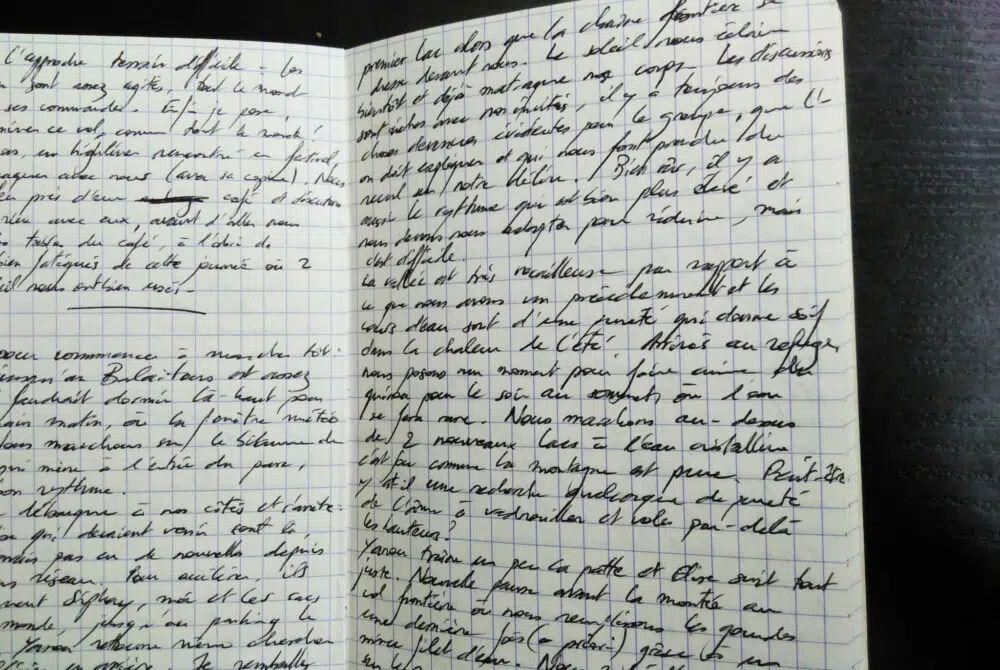 L'approche terrain difficile : les
sont assez agités, tout le monde
ses commandes. Et je pose
ce vol, comme tout le monde
rencontré en festival,
avec nous (avec sa copine). Nous
près d'eux café et discutons
avec eux, avant d'aller nous
tables du café, à l'abri de
bien fatigués de cette journée où 2
nous ont bien usés.
pour commencer à marcher tôt.
jusqu'au Balaïtous est assez
faudrait dormir là-haut pour
matin, où la fenêtre météo
marchons sur le bitume de
qui mène à l'entrée du parc,
bon rythme.
à nos côtés et s'arrête.
qui devaient venir sont là
mais pas eu de nouvelle depuis
réseau. Pour accélérer, ils
Siphay, moi et les sacs
monde jusqu'au parking le
Yanou retourne même chercher
en arrière. Je remballe
premier lac alors que la chaîne frontière se
dresse devant nous. Le soleil nous éclaire
bientôt et déjà mat-aque nos corps. Les discussions
sont riches avec nos invités, il y a toujours des
choses devenues évidentes pour le groupe, que l'
on doit expliquer et qui nous font prendre du
recul sur notre délire. Bien sûr, il y a
aussi le rythme qui est bien plus élevé et
nous devons nous adapter pour réduire, mais
c'est difficile.
La vallée est très rocailleuse par rapport à
ce que nous avons vu précédemment et les
cours d'eau sont d'une pureté qui donne soif
dans la chaleur de l'été. Arrivés au refuge,
nous posons un moment pour faire cuire du
quinoa pour le soir au sommet, où l'eau
se fera rare. Nous marchons au-dessus
de 2 nouveaux lacs à l'eau cristalline
c'est fou comme la montagne est pure. Peut-être
y a-t-il une recherche quelconque de pureté
de l'âme à vadrouiller et voler par-delà
les hauteurs?
Yanou traîne un peu la patte et Elise suit tout
juste. Nouvelle pause avant la montée au
col frontière où nous remplissons les gourdes
une dernière fois (a priori) grâce à un
mince filet d'eau. Nous